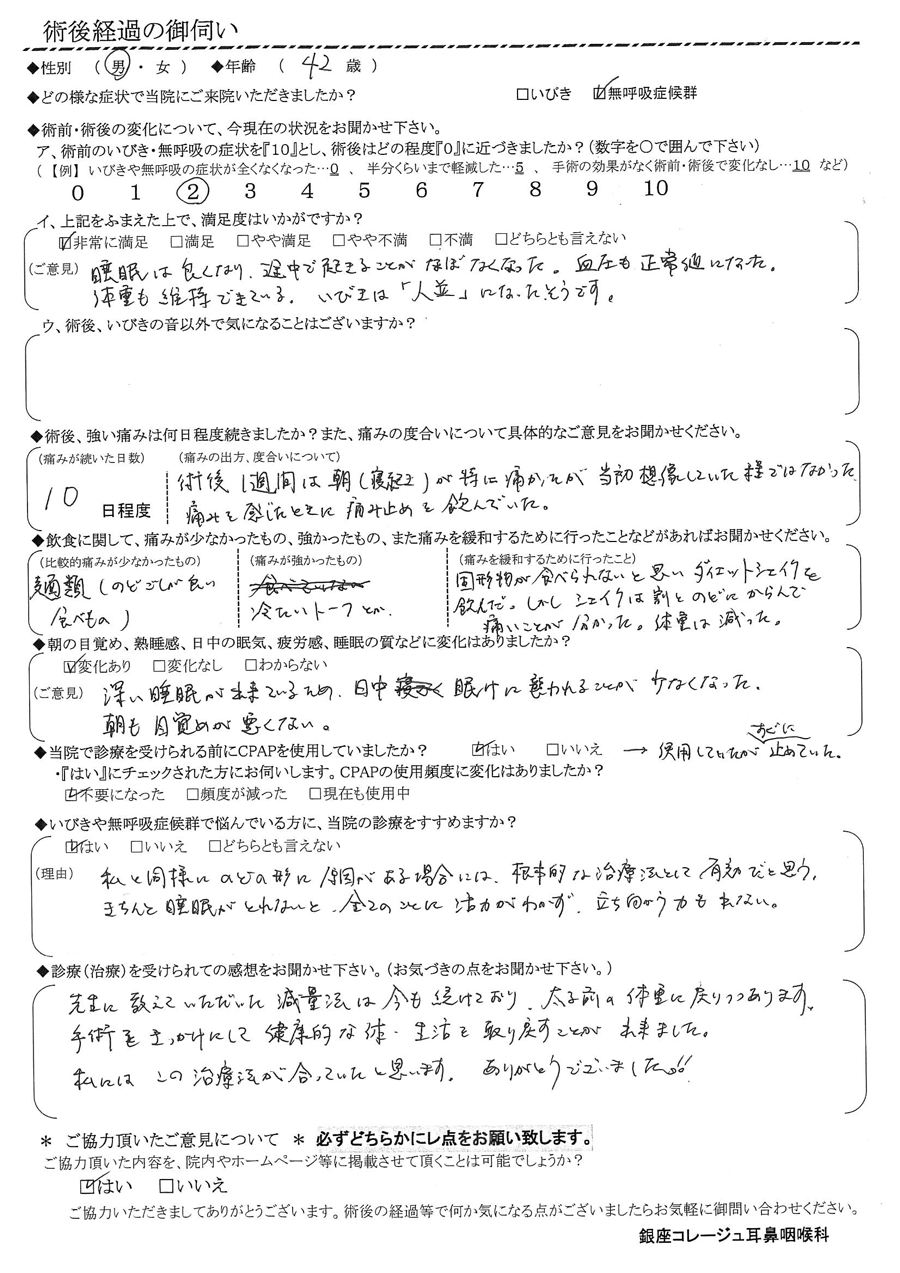 術後経過の御伺い
◆性別 （ 男 ・ 女 ） ◆年齢 （ 42 歳 ）
◆どの様な症状で当院にご来院いただきましたか？ □いびき ☑無呼吸症候群
◆術前・術後の変化について、今現在の状況をお聞かせ下さい。
ア、術前のいびき・無呼吸の症状を『10』とし、術後はどの程度『0』に近づきましたか？（数字を○で囲んで下さい）
（【例】 いびきや無呼吸の症状が全くなくなった…0 、 半分くらいまで軽減した…5 、 手術の効果がなく術前・術後で変化なし…10 など）
0 1 2 3 4 5 6 7 8 9 10
イ、上記をふまえた上で、満足度はいかがですか？
☑非常に満足 □満足 □やや満足 □やや不満 □不満 □どちらとも言えない
（ご意見） 睡眠は良くなり、途中で起きることがなぼなくなった。血圧も正常値になった。
体重も維持できている。いびきは「人並」になったそうです。
ウ、術後、いびきの音以外で気になることはございますか？
◆術後、強い痛みは何日程度続きましたか？また、痛みの度合いについて具体的なご意見をお聞かせください。
（痛みが続いた日数） （痛みの出方、度合いについて）
10 日程度
術後1週間は朝（寝起き）が特に痛かたが当初想像していた様ではなかった。
痛みを感じたときに痛み止めを飲んでいた。
◆飲食に関して、痛みが少なかったもの、強かったもの、また痛みを緩和するために行ったことなどがあればお聞かせください。
（比較的痛みが少なかったもの） （痛みが強かったもの） （痛みを緩和するために行ったこと）
麺類（のどごしが良い
食べもの）
冷たいトーフとか、
固形物が食べられないと思いダイエットシェイクを
飲んだ。しかしシェイクは割とのどにからんで
痛いことが分かった。体重は減った。
◆朝の目覚め、熟睡感、日中の眠気、疲労感、睡眠の質などに変化はありましたか？
☑変化あり □変化なし □わからない
（ご意見） 深い睡眠が出来ているため、日中 眠けに襲われることが少なくなった。
朝も目覚めが悪くない。
◆当院で診療を受けられる前にCPAPを使用していましたか？ ☑はい □いいえ → 使用していたがすぐに止めていた。
・『はい』にチェックされた方にお伺いします。CPAPの使用頻度に変化はありましたか？
☑不要になった □頻度が減った □現在も使用中
◆いびきや無呼吸症候群で悩んでいる方に、当院の診療をすすめますか？
☑はい □いいえ □どちらとも言えない
（理由） 私と同様にのどの形に原因がある場合には、根本的な治療法として有効だと思う。
きちんと睡眠がとれないと、全てのことに活力がわかず、立ち向かう力もれない。
◆診療（治療）を受けられての感想をお聞かせ下さい。（お気づきの点をお聞かせ下さい。）
先生に教えていただいた減量法は今も続けており、太る前の体重に戻りつつあります。
手術をきっかけにして健康的な体・生活を取り戻すことが出来ました。
私にはこの治療法が合っていたと思います。ありがとうございました!!
＊ ご協力頂いたご意見について ＊ 必ずどちらかにレ点をお願い致します。
ご協力頂いた内容を、院内やホームページ等に掲載させて頂くことは可能でしょうか？
☑はい □いいえ
ご協力いただきましてありがとうございます。術後の経過等で何か気になる点がございましたらお気軽に御問い合わせください。
銀座コレージュ耳鼻咽喉科